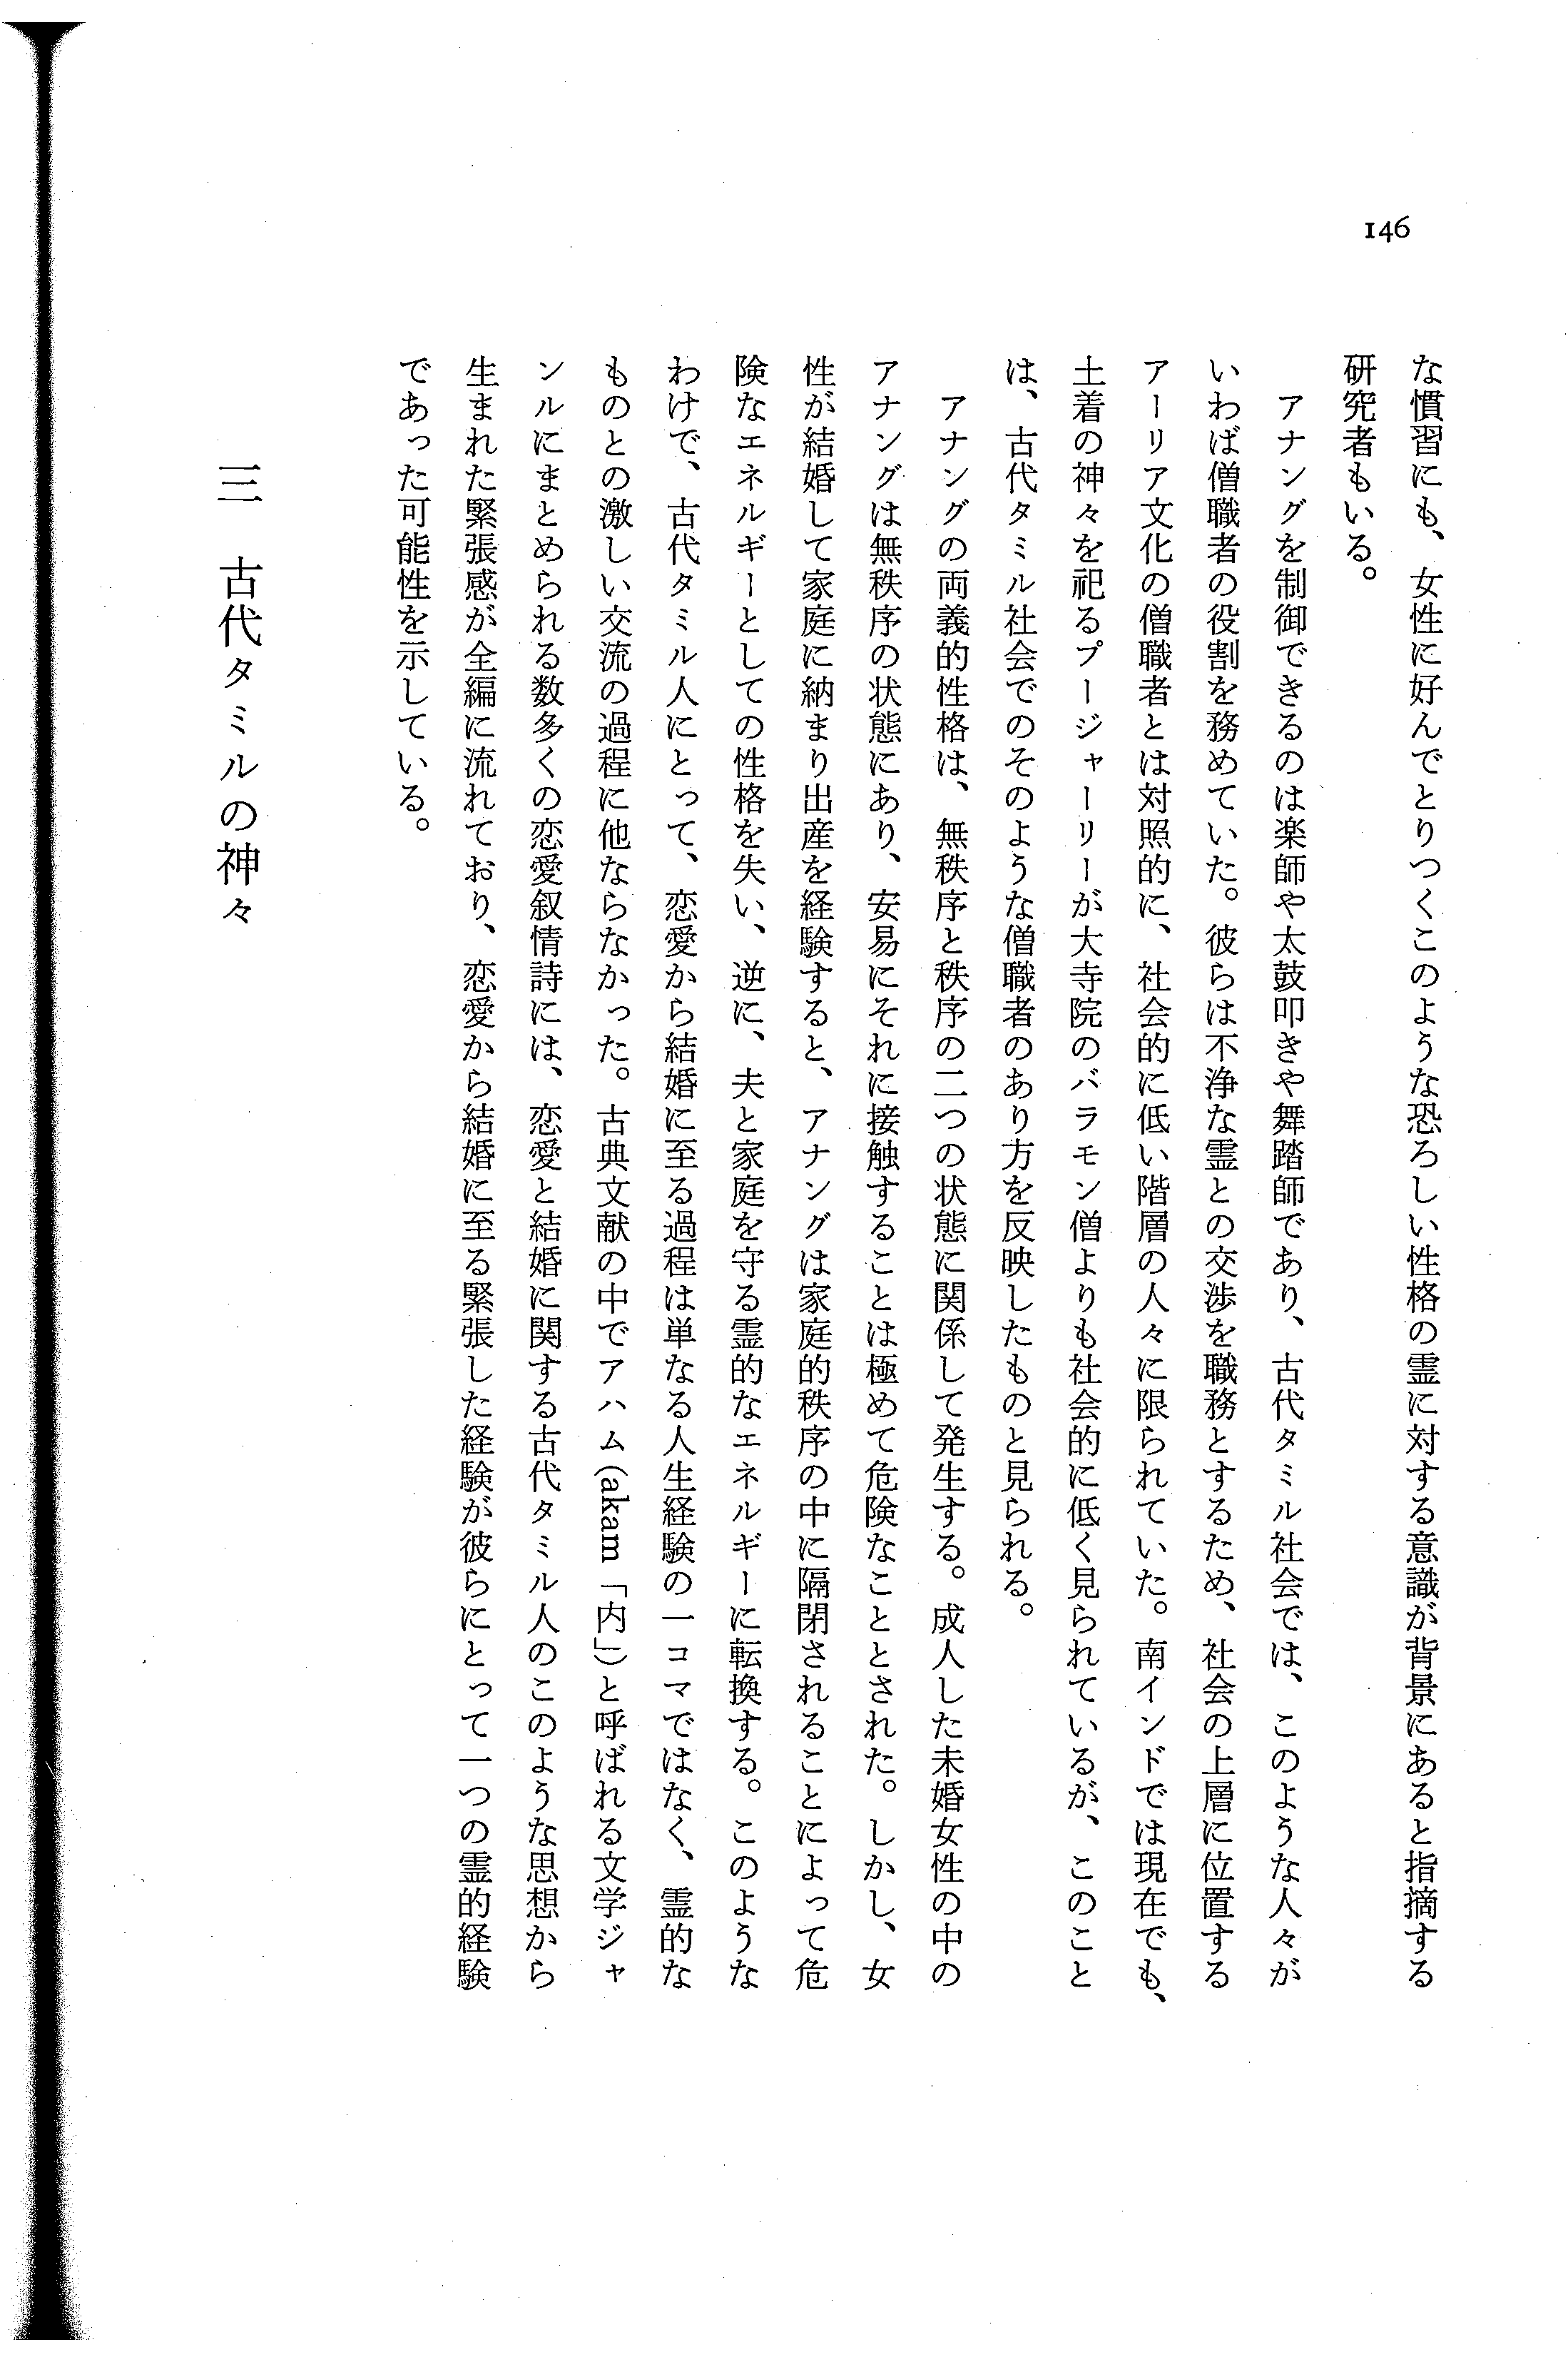 146
な慣習にも、女性に好んでとりつくこのような恐ろしい性格の霊に対する意識が背景にあると指摘する
研究者もいる。
アナングを制御できるのは楽師や太鼓叩きや舞踏師であり、古代タミル社会では、このような人々が
いわば僧職者の役割を務めていた。彼らは不浄な霊との交渉を職務とするため、社会の上層に位置する
アーリア文化の僧職者とは対照的に、社会的に低い階層の人々に限られていた。南インドでは現在でも、
土着の神々を祀るプージャーリーが大寺院のバラモン僧よりも社会的に低く見られているが、このこと
は、古代タミル社会でのそのような僧職者のあり方を反映したものと見られる。
アナングの両義的性格は、無秩序と秩序の二つの状態に関係して発生する。成人した未婚女性の中の
アナングは無秩序の状態にあり、安易にそれに接触することは極めて危険なこととされた。しかし、女
性が結婚して家庭に納まり出産を経験すると、アナングは家庭的秩序の中に隔閉されることによって危
険なエネルギーとしての性格を失い、逆に、夫と家庭を守る霊的なエネルギーに転換する。このような
わけで、古代タミル人にとって、恋愛から結婚に至る過程は単なる人生経験の一コマではなく、霊的な
ものとの激しい交流の過程に他ならなかった。古典文献の中でアハム(akam「内」)と呼ばれる文学ジャ
ンルにまとめられる数多くの恋愛叙情詩には、恋愛と結婚に関する古代タミル人のこのような思想から
生まれた緊張感が全編に流れており、恋愛から結婚に至る緊張した経験が彼らにとって一つの霊的経験
であった可能性を示している。
三 古代タミルの神々